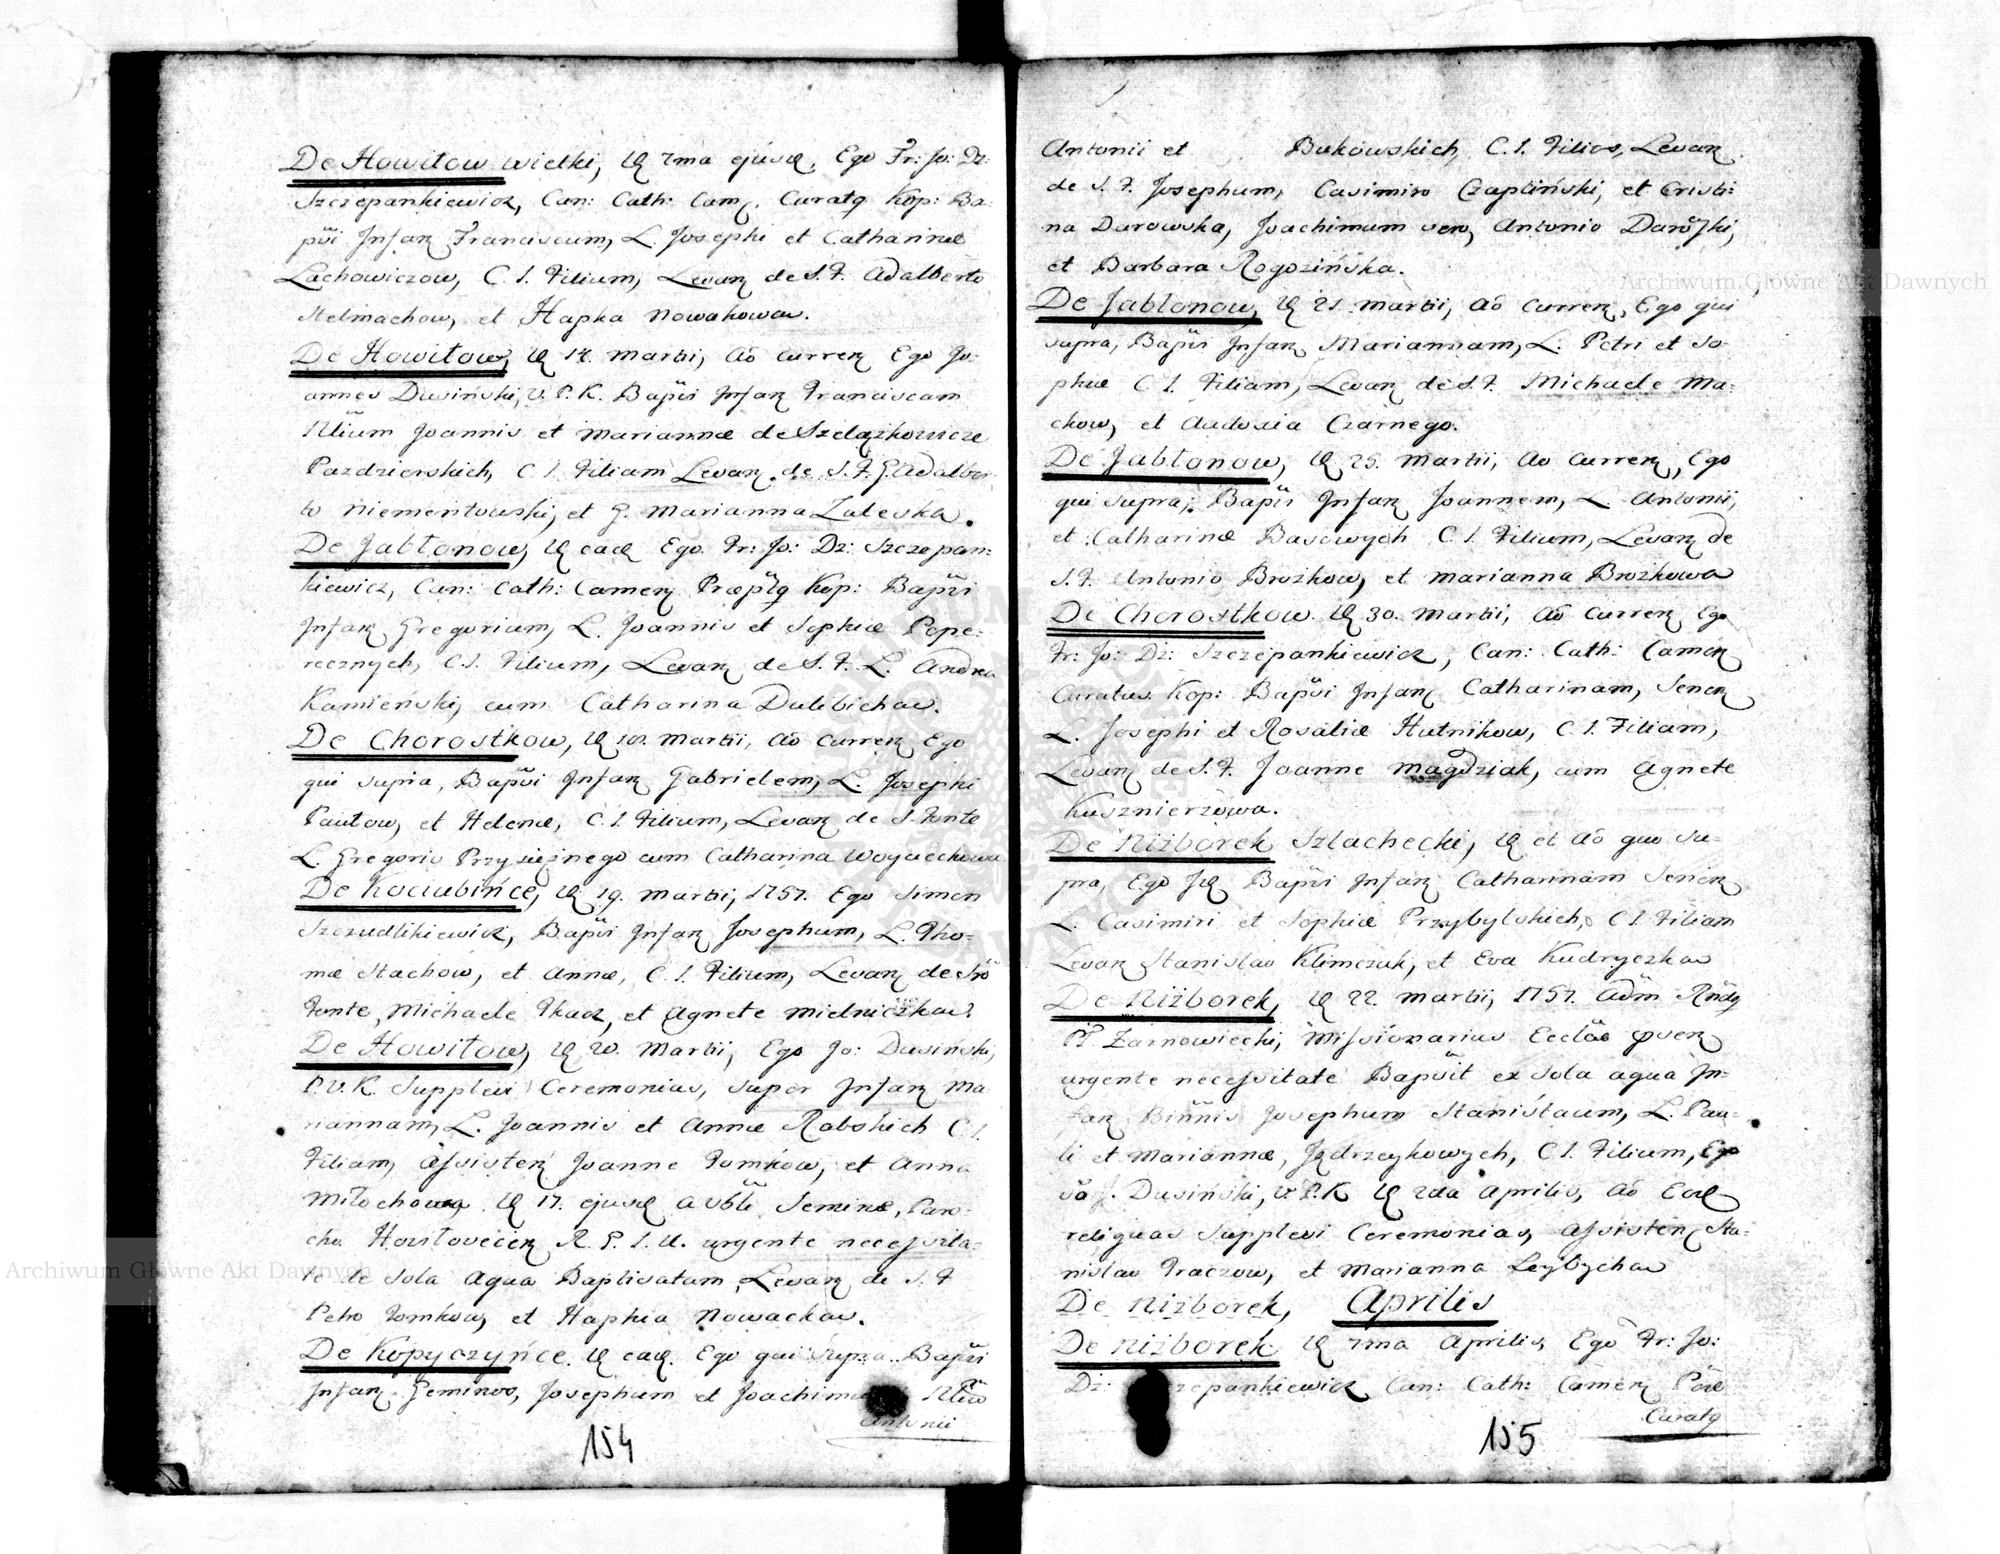 De Howiłow wielki, die 7ma ejusd, Ego Fr: Jo: Dz:
Szczepankiewicz, Can: Cath: Cam, Curatq Kop: Ba-
pvi Infan Franciscum, L. Josephi et Catharinæ
Lachowiczow, C. I. Filium, Levan de S. F. Adalberto
Stelmachow, et Hapka Nowakowa.
De Howiłow, die 14. Martii, Ao curren Ego Jo-
annes Dusiński, V. P. K. Bapvi Infan Franciscam
Joannis et Mariannæ de Szelążkowicze
Pazdzierskich, C. I. Filiam Levan de S. F. G. Adalber-
to Niementowski, et G. Marianna Zaleska.
De Jabłonow, die ead Ego Fr: Jo: Dz: Szczepan-
kiewicz, Can: Cath: Camen Præptq Kop: Bapvi
Infan Gregorium, L. Joannis et Sophiæ Pope-
recznych, C. I. Filium, Levan de S. F. L. Andrea
Kamieński, cum Catharina Dulibichaw.
De Chorostkow, die 18. Martii, Ao curren Ego
qui supra, Bapvi Infan Gabrielem, L. Josephi
Pautow, et Helenæ, C. I. Filium, Levan de S. Fonte
L. Gregorio Przysiężnego cum Catharina Woyciechowa
De Kociubińce, die 19. Martii, 1757. Ego Simon
Szczudlikiewicz, Bapvi Infan Josephum, L. Tho-
mæ Stachow, et Annæ, C. I. Filium, Levan de Sro
Fonte, Michaele Tkacz, et Agnete Mielniczka.
De Howiłow, die 20. Martii, Ego Jo: Dusiński,
P. V. K. Supplevi Ceremonias, super Infan Ma-
riannam, L. Joannis et Annæ Rabskich C. I.
Filiam, Assisten Joanne Tomkow, et Anna
Miłochowa, die 17. ejusd a Semine, Paro-
cho Howiłovecen R. G. I. U. urgente necessita-
te de sola Aqua Baptisatam, Levan de S. F
Petro Tomkow, et Haphia Nowackaw.
De Kopyczyńce. die ead. Ego qui supra Bapvi
Infan Geminos, Josephum et Joachimum
Antonii
154
Antonii et Bukowskich, C. I. Filios, Levan
de S. F. Josephum, Casimiro Czapliński, et Cristi-
na Darowska, Joachimum vero, Antonio Darowski,
et Barbara Rogozińska.
De Jabłonow, die 21. Martii, Ao curren, Ego qui
supra, Bapvi Infan Mariannam, L. Petri et So-
phiæ C. I. Filiam, Levan de S. F. Michaele Ma-
chow, et Audoxia Czarnego.
De Jabłonow, die 25. Martii, Ao curren, Ego
qui supra, Bapvi Infan Joannem, L Antonii,
et Catharinæ Basowych C. I. Filium, Levan de
S. F. Antonio Brożkow, et Marianna Brożkowa
De Chorostkow. die 30. Martii, Ao curren Ego
Fr: Jo: Dz: Szczepankiewicz, Can: Cath: Camen
Curatus Kop: Bapvi Infan Catharinam, Senen
L. Josephi et Rosaliæ Hutnikow, C. I. Filiam,
Levan de S. F. Joanne Magdziak, cum Agnete
Kusznierzowa.
De Niżborek Szlachecki, die et Ao quo su-
pra, Ego Id Bapvi Infan Catharinam Senen
L. Casimiri et Sophiæ Przybylskich, C I. Filiam
Levan Stanislao Klimczuk, et Eva Kudryczkaw
De Niżborek, die 22. Martii, 1757. Adm Rndq
P Żarnowiecki, Missionarius Ecclæ
urgente necessitate Bapvit ex sola aqua In-
fan Binnis Josephum Stanisłaum, L. Pau-
li et Mariannæ, Jędrzeykowych, C I. Filium, Ego
vo J. Dusiński, V. P. K die 2da Aprilis, Ao Eod
reliquas supplevi Ceremonias, Assisten Sta-
nislao Traczow, et Marianna Leybychaw
De Niżborek, Aprilis
De Niżborek die 7ma Aprilis, Ego Fr: Jo:
Dz: Szczepankiewicz Can: Cath: Camen
Curatq
155
Archiwum Główne Akt Dawnych
Archiwum Główne Akt Dawnych